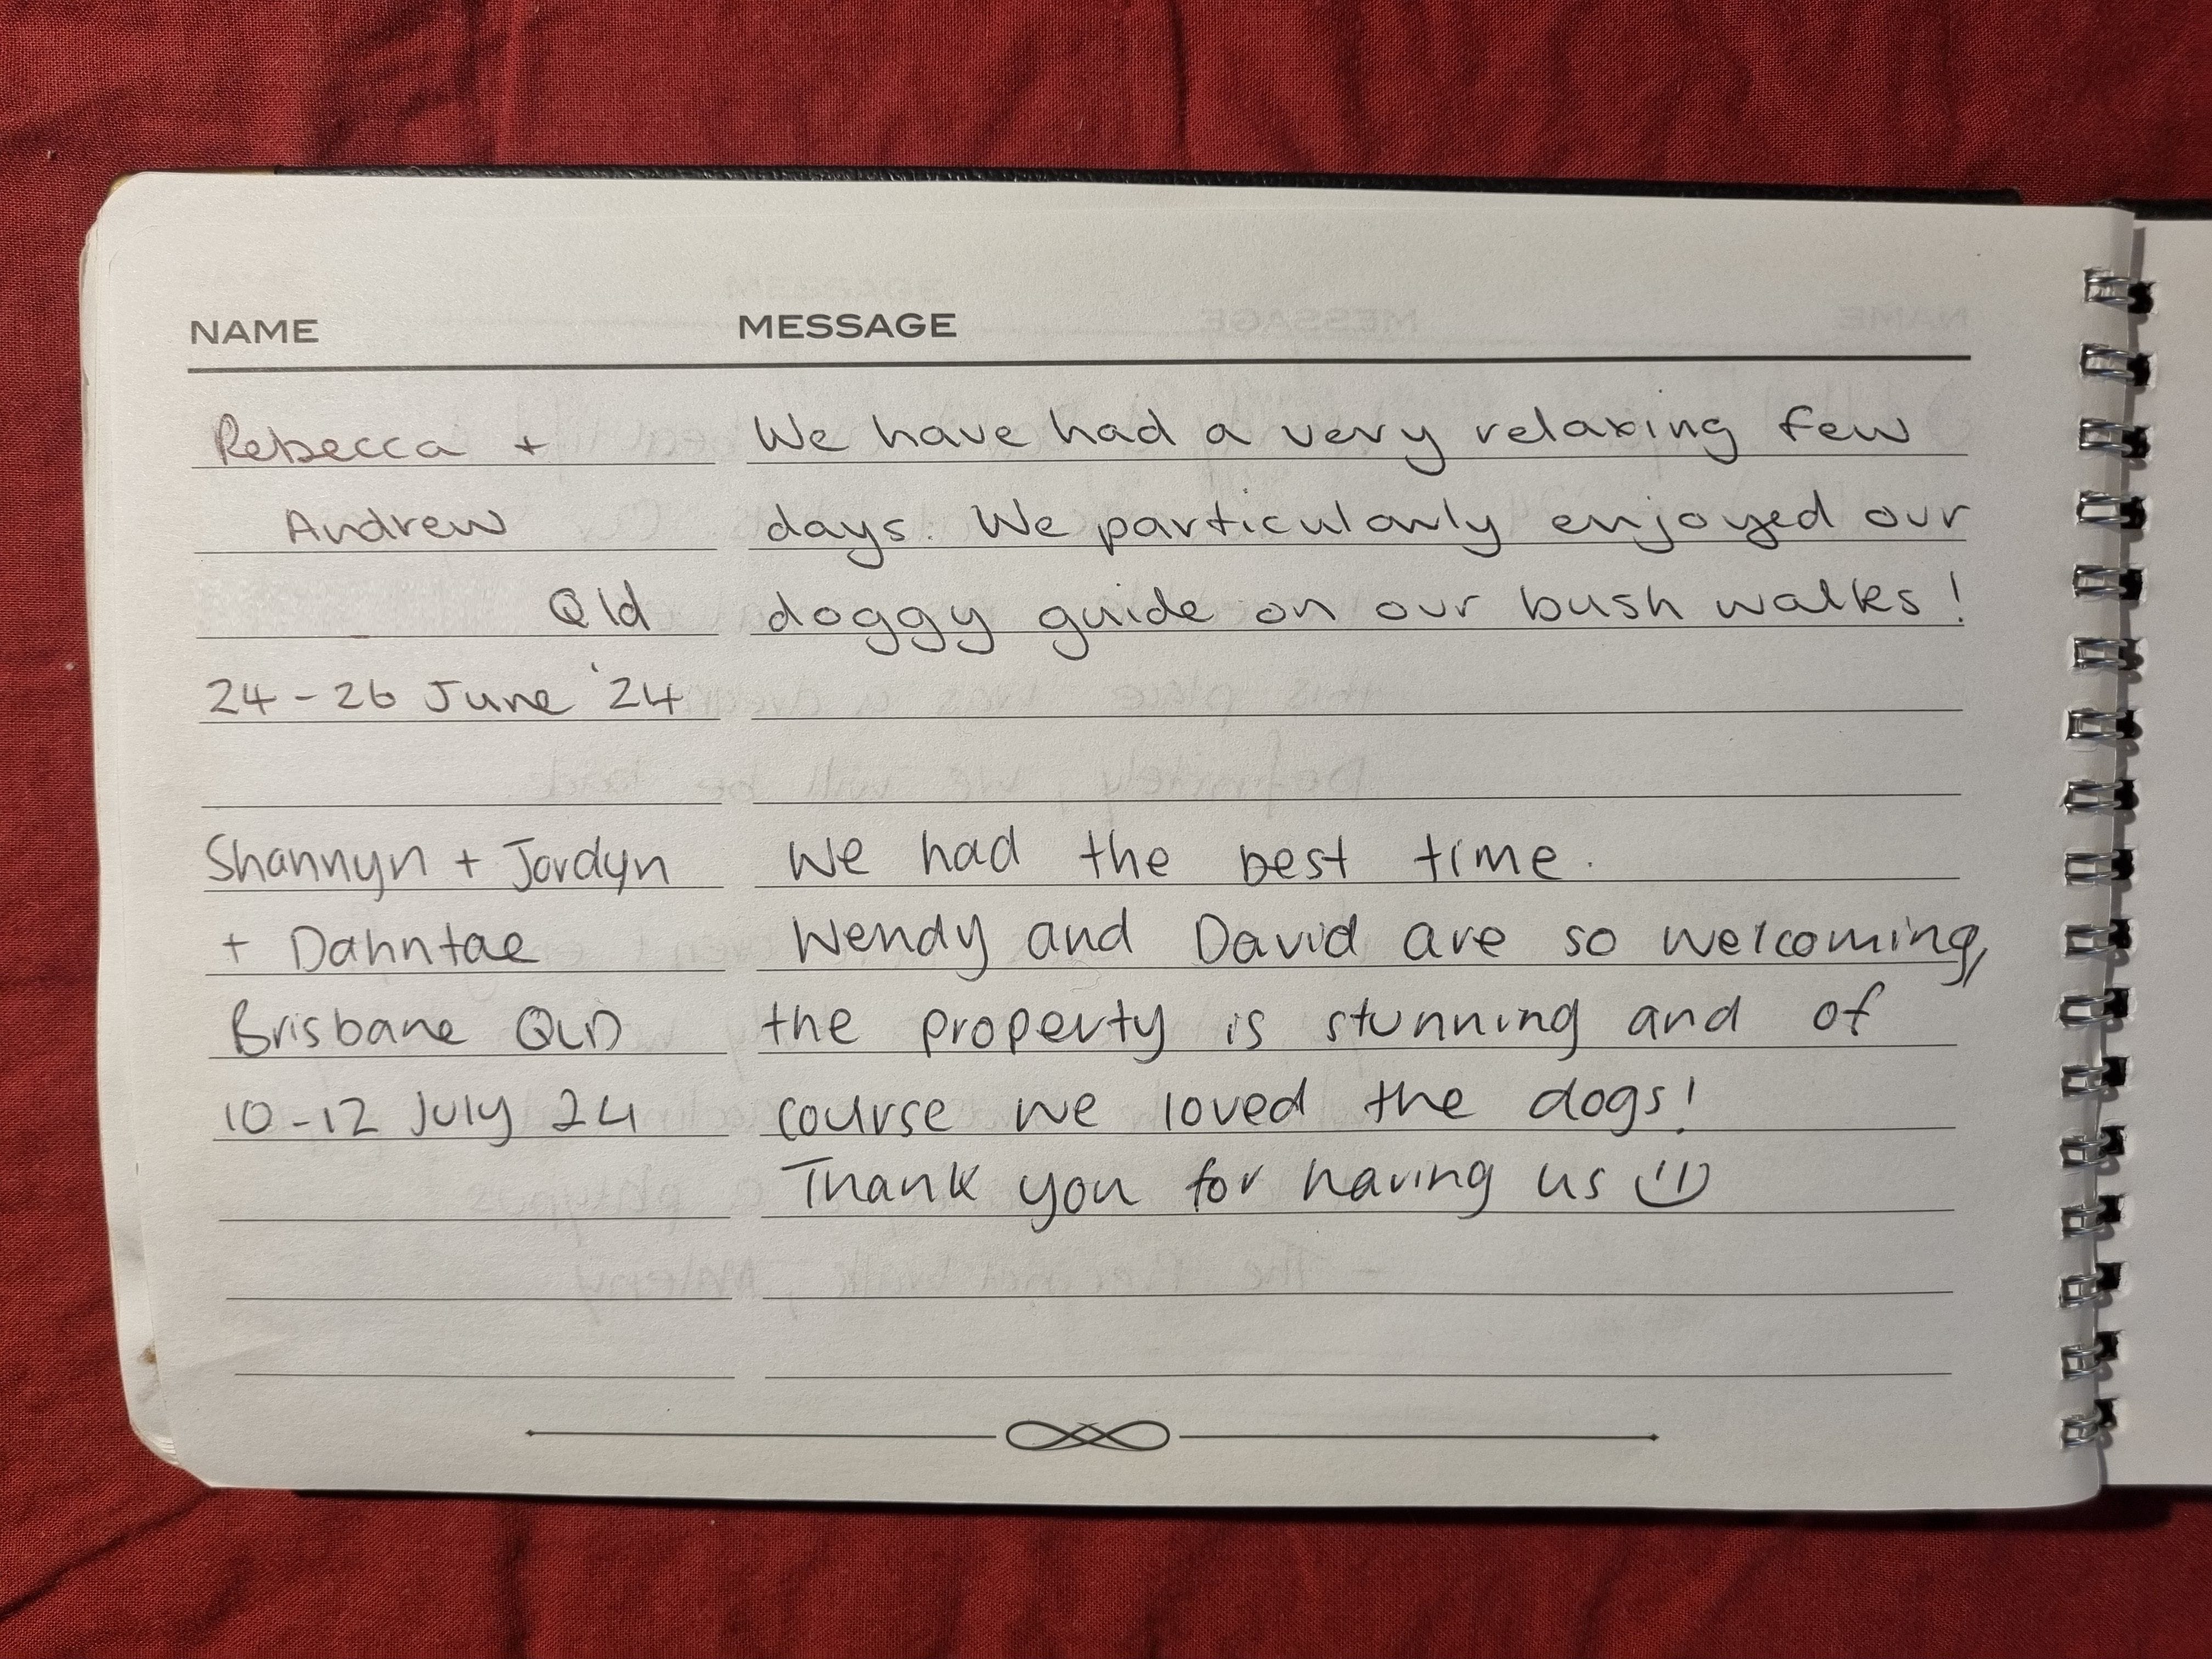 NAME MESSAGE
Rebecca + We have had a very relaxing few
Andrew days. We particularly enjoyed our
Qld doggy guide on our bush walks!
24-26 June '24
Shannyn + Jordyn We had the best time.
+ Dahntae Wendy and David are so welcoming,
Brisbane QLD the property is stunning and of
10-12 July 24 course we loved the dogs!
Thank you for having us